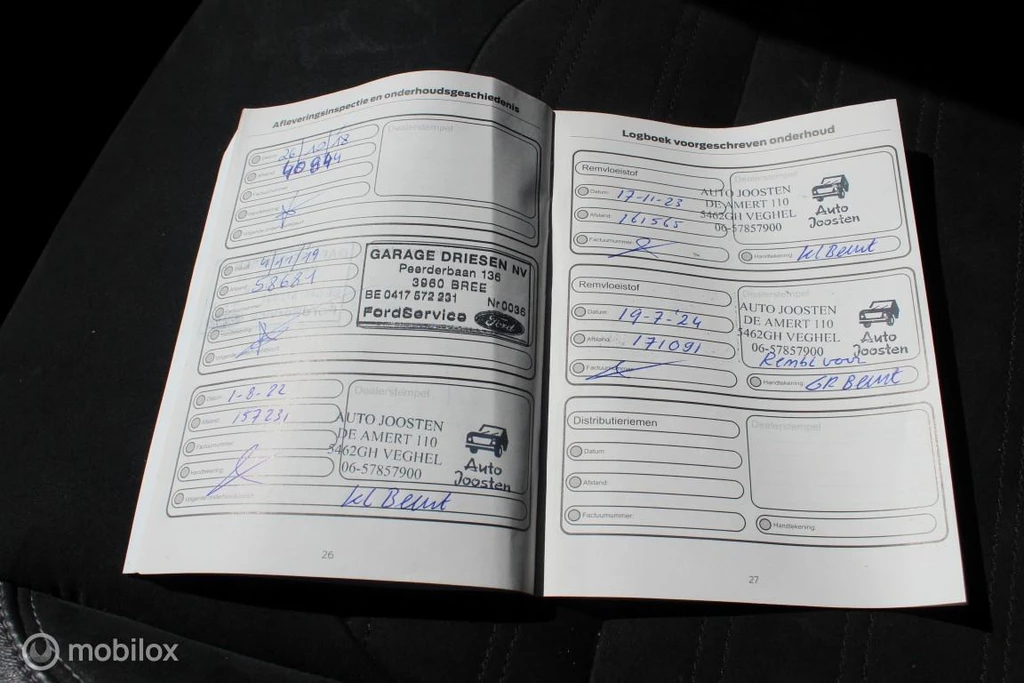 Afleveringsinspectie en onderhoudsgeschiedenis
Datum: 26/10/18
Afstand:
Factuurnummer:
Handtekening:
Dealerstempel
4/11/19
Afstand: 58681
GARAGE DRIESEN NV
Peerderbaan 136
3960 BREE
BE 0417 572 231 Nr 0036
FordService Ford
Datum: 1-8-22
Afstand: 157231
Factuurnummer:
Handtekening:
Dealerstempel
AUTO JOOSTEN
DE AMERT 110
5462GH VEGHEL
06-57857900
Auto
Joosten
kl Beurt
26
Logboek voorgeschreven onderhoud
Remvloeistof
Datum: 17-11-23
Afstand: 161565
Factuurnummer:
Dealerstempel
AUTO JOOSTEN
DE AMERT 110
5462GH VEGHEL
06-57857900
Auto
Joosten
Handtekening: kl Beurt
Remvloeistof
Datum: 19-7-24
Afstand: 171091
Factuurnummer:
Dealerstempel
AUTO JOOSTEN
DE AMERT 110
5462GH VEGHEL
06-57857900
Auto
Joosten
Handtekening: GR Beurt
Distributieriemen
Datum:
Afstand:
Factuurnummer:
Dealerstempel
Handtekening:
27
mobilox